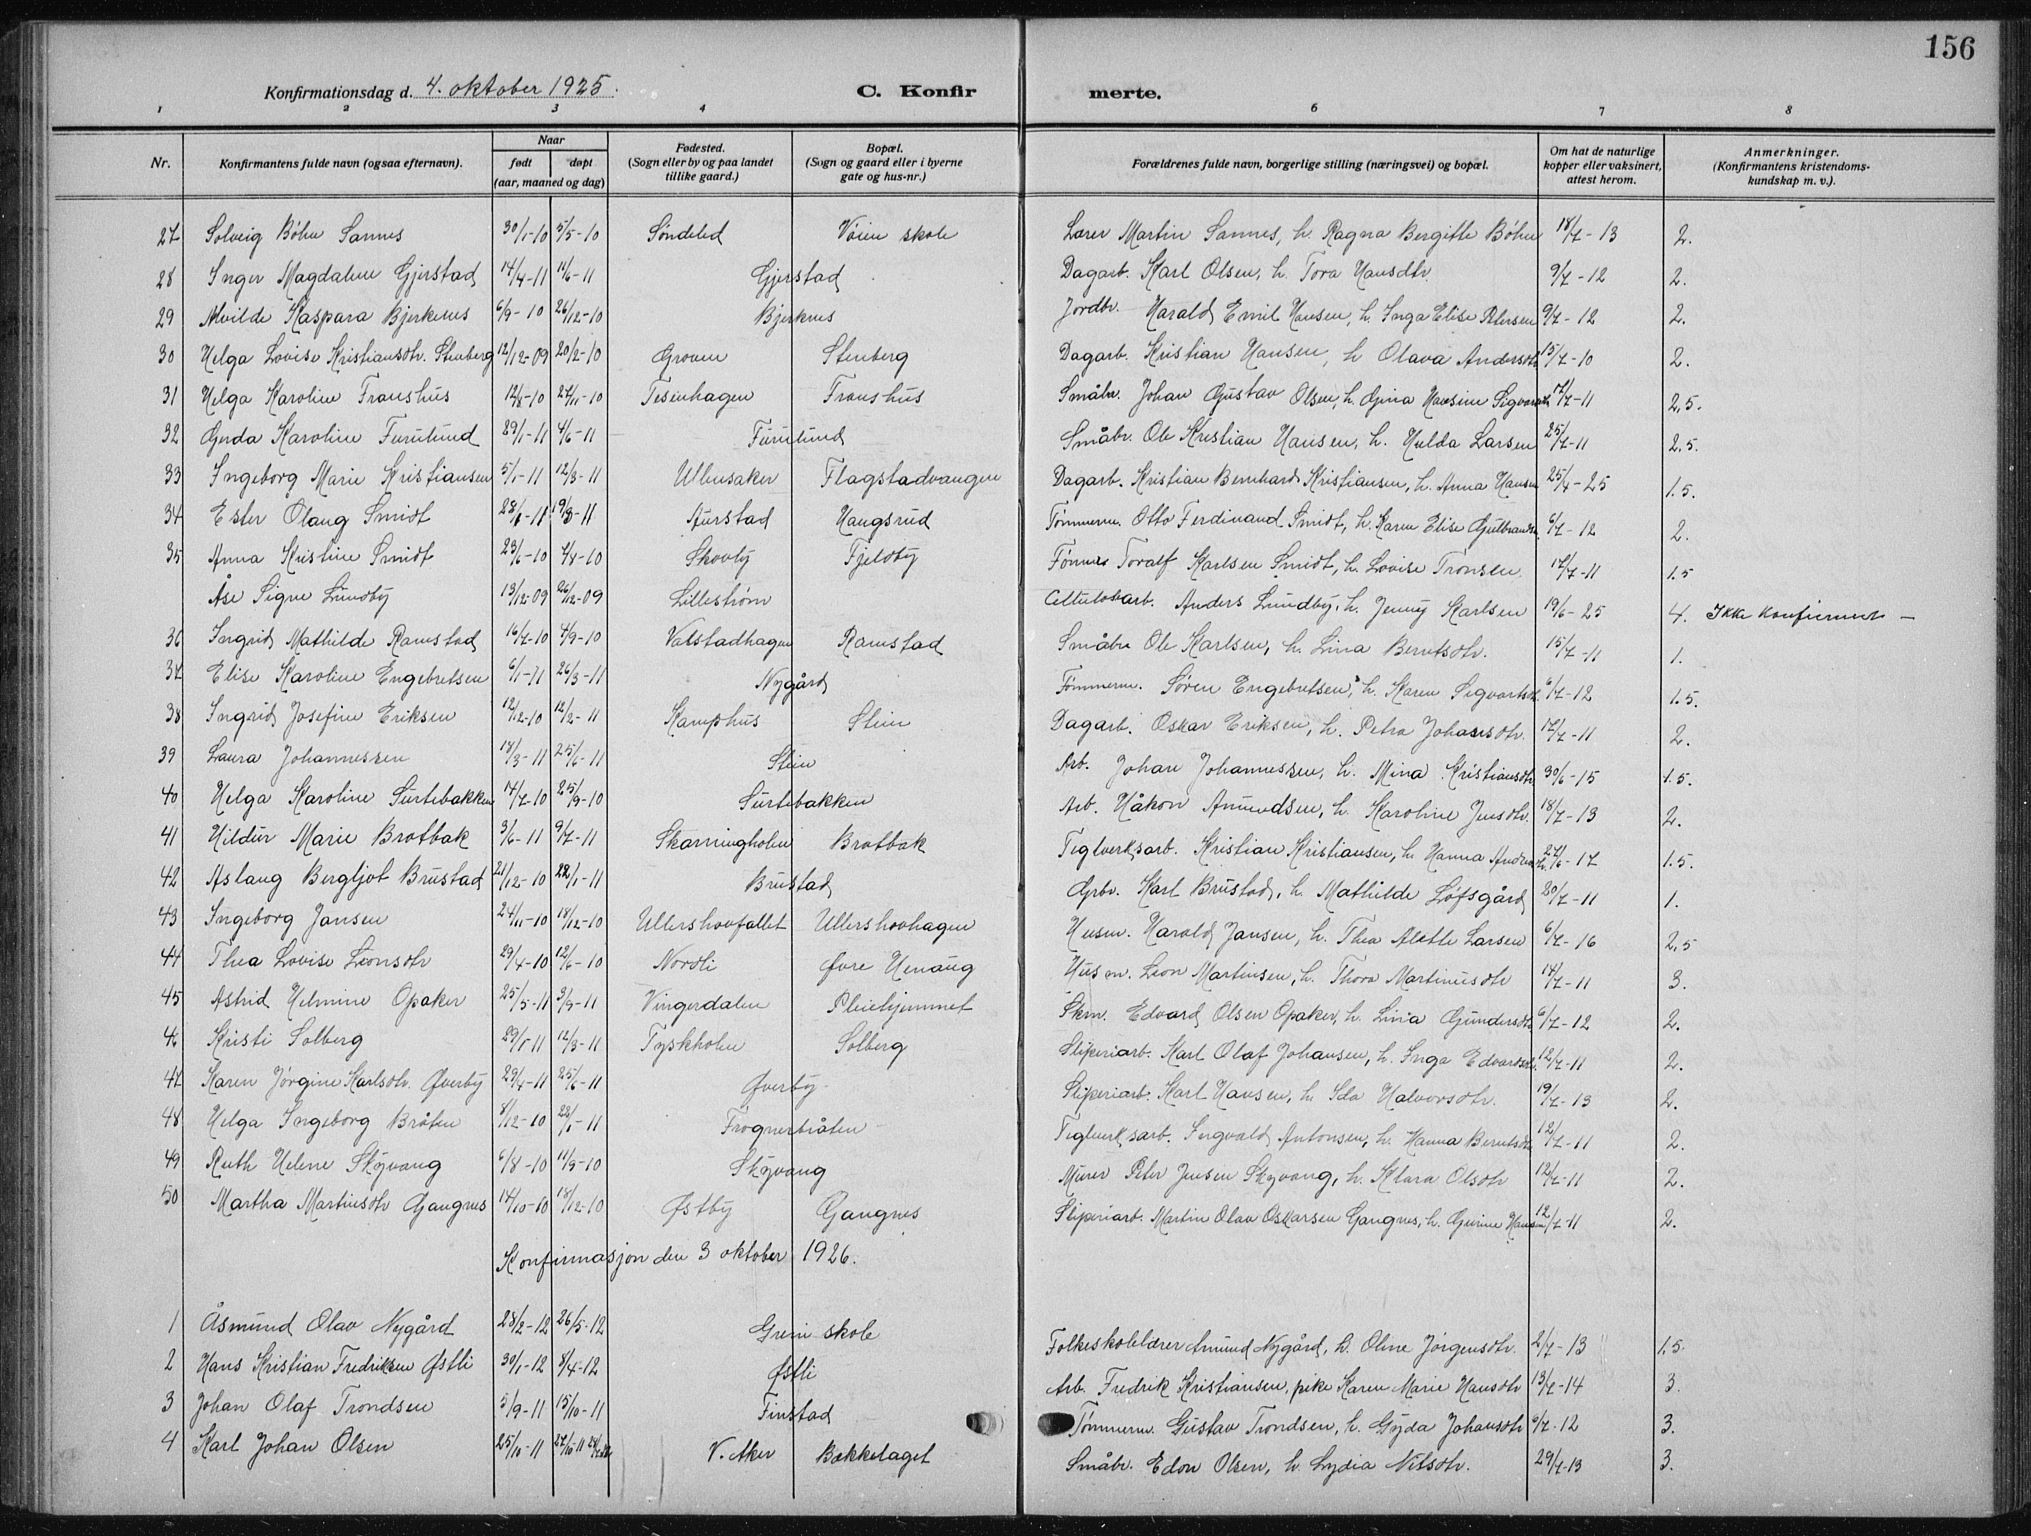 156
Konfirmationsdag d. 4. oktober 1925. C. Konfir merte.
1 2 3 4 6 7 8
Nr. Konfirmantens fulde navn (ogsaa efternavn). Naar født døpt (aar, maaned og dag) Fødested. (Sogn eller by og paa landet tillike gaard.) Bopæl. (Sogn og gaard eller i byerne gate og hus-nr.) Forældrenes fulde navn, borgerlige stilling (næringsvei) og bopæl. Om hat de naturlige kopper eller vaksinert, attest herom. Anmerkninger. (Konfirmantens kristendoms-kundskap m. v.).
27 Solveig Bøhn Sannes 30/1-10 5/5-10 Søndeled Vøien skole Lærer Martin Sannes, h. Ragna Bergitte Bøhn 18/7-13 2.
28 Inger Magdalene Gjerstad 14/4-11 11/6-11 Gjerstad Dagarb. Karl Olsen, h. Tora Hansdtr. 9/7-12 2.
29 Alvilde Kaspara Bjerknes 6/9-10 26/12-10 Bjerknes Jordbr. Harald Emil Hansen, h. Inga Elise Petersen 9/7-12 2.
30 Helga Lovise Kristiansdtr. Stenberg 12/12-09 20/2-10 Groven Stenberg Dagarb. Kristian Hansen, h. Olava Andersdtr. 15/7-10 2.
31 Helga Karoline Franshus 12/8-10 27/11-10 Tesenhagen Franshus Småbr. Johan Gustav Olsen, h. Gina Hansine 17/7-11 2.5.
32 Gerda Karoline Furulund 29/1-11 4/6-11 Furulund Småbr. Ole Kristian Hansen, h. Hulda Larsen 25/7-11 2.5.
33 Ingeborg Marie Kristiansen 5/1-11 12/3-11 Ullensaker Flagstadvangen Dagarb. Kristian Bernhard Kristiansen, h. Anna Hansen 25/4-25 1.5.
34 Ester Olaug Smidt Aurstad Haugsrud Tømmerm. Otto Ferdinand Smidt, h. Karen Elise 6/7-12 2.
35 Anna Kristine Smidt 23/6-10 Skovby Fjeldby Toralf Karlsen Smidt, h. Lovise Tronsen. 17/7-11 1.5
Åse Signe Lundby 13/12-09 26/12-09 Lillestrøm Cellulosearb. Anders Lundby, h. Jenny Karlsen 19/6-25 4. Ikke konfirmert –
36 Ingrid Mathilde Ramstad 16/7-10 4/9-10 Valstadhagen Ramstad Småbr. Ole Karlsen, h. Lina Berntsdtr. 15/7-11 1.
37 Elise Karoline Engebretsen 6/1-11 26/3-11 Nygård Tømmerm. Søren Engebretsen, h. Karen Sigvartsdtr. 6/7-12 1.5.
38 Ingrid Josefine Eriksen 12/12-10 12/2-11 Kamphus Stein Dagarb. Oskar Eriksen, h. Petra Johansdtr. 17/7-11 2.
39 Laura Johannessen 18/3-11 25/6-11 Stein Arb. Johan Johannessen, h. Mina Kristiansdtr. 30/6-15 1.5.
40 Helga Karoline Surtebakken 14/7-10 25/9-10 Surtebakken Arb. Håkon Amundsen, h. Karoline Jensdtr. 18/7-13 2.
41 Hildur Marie Brotbak 3/6-11 9/7-11 Skarningholen Brotbak Teglverksarb. Kristian Kristiansen, h. Hanna 27/6-17 1.5.
42 Aslaug Bergljot Brustad 21/12-10 22/1-11 Brustad Grbr. Karl Brustad, h. Mathilde Løfsgård 20/7-11 1.
43 Ingeborg Jansen 24/11-10 18/12-10 Ullershovfallet Ullershovhagen Husm. Harald Jansen, h. Thea Alette Larsen 6/7-16 2.5
44 Thea Lovise Leonsdtr 29/4-10 12/6-10 Nordli Øvre Henaug Husm. Leon Martinsen, h. Thora Martinusdtr 14/7-11 3.
45 Astrid Helmine Opaker 25/5-11 3/9-11 Vingerdalen Pleiehjemmet Skm. Edvard Olsen Opaker, h. Lina Gundersdtr. 6/7-12 2.
46 Kristi Solberg 29/1-11 12/3-11 Tyskholen Solberg Sliperiarb. Karl Olaf Johansen, h. Inga Edvardsdtr. 12/7-11 2.
47 Karen Jørgine Karlsdtr. Øverby 29/4-11 25/6-11 Øverby Sliperiarb. Karl Hansen, h. Ida Halvorsdtr. 19/7-13 2.
48 Helga Ingeborg Bråten 8/12-10 28/1-11 Frognerbråten Teglverksarb. Ingvald Antonsen, h. Hanna Berntsdtr 12/7-11 2.
49 Ruth Helene Skyvang 6/8-10 11/9-10 Skyvang Murer Peter Jensen Skyvang, h. Klara Olsdtr 12/7-11 2.
50 Martha Martinsdtr Gangnes 14/10-10 18/12-10 Østby Gangnes Sliperiarb. Martin Olav Oskarsen Gangnes, h. Gurine Hansen 12/7-11 2.
Konfirmasjon den 3 oktober 1926.
1 Åsmund Olav Nygård 28/2-12 26/5-12 Greni skole Folkeskolelærer Amund Nygård, h. Oline Jørgensdtr. 2/7-13 1.5.
2 Hans Kristian Fredriksen Østli 30/1-12 8/4-12 Østli Arb. Fredrik Kristiansen, pike Karen Marie Hansdtr 13/7-14 3.
3 Johan Olaf Trondsen 5/9-11 15/10-11 Finstad Tømmerm. Gustav Trondsen, h. Gyda Johansdtr 6/7-12 3.
4 Karl Johan Olsen 25/10-11 V. Aker Bækkelaget Småbr. Edon Olsen, h. Lydia Nilsdtr. 29/7-13 3.